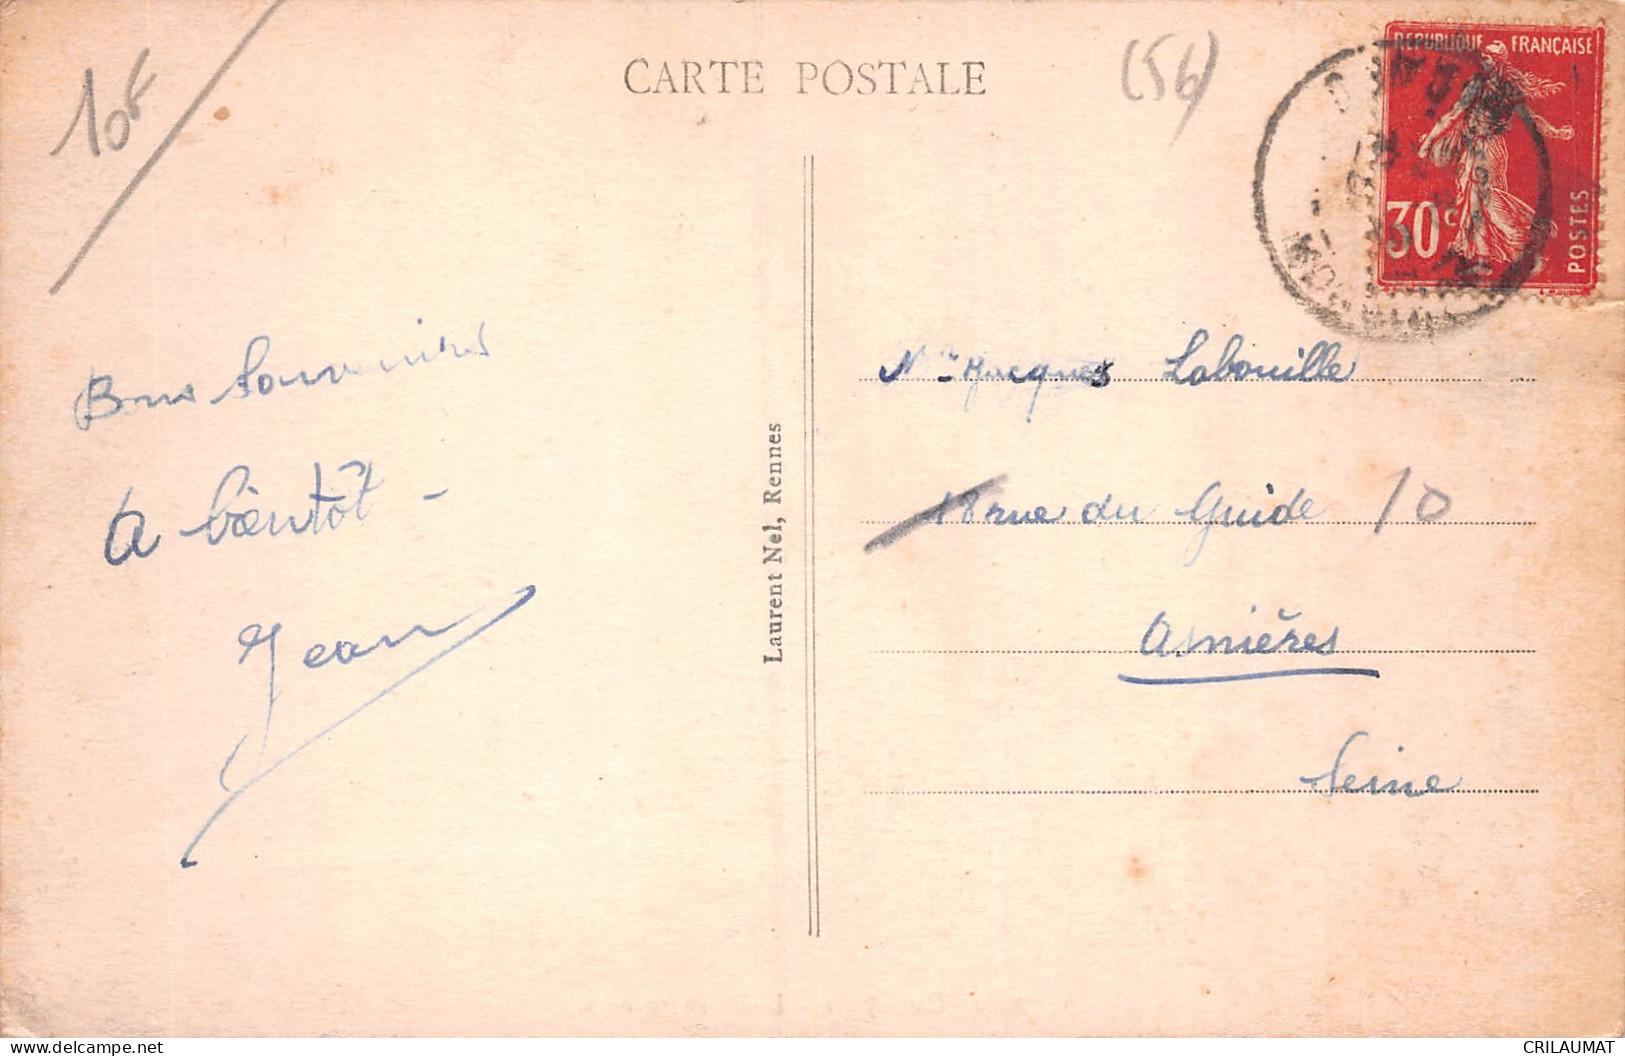 10F
CARTE POSTALE
(56)
REPUBLIQUE FRANÇAISE
30c
POSTES
MORBIHAN
Bons souvenirs
A bientôt -
Jean
Laurent Nel, Rennes
Jacques Labouille
18 rue du Guide 10
Asnières
Seine
CRILAUMAT